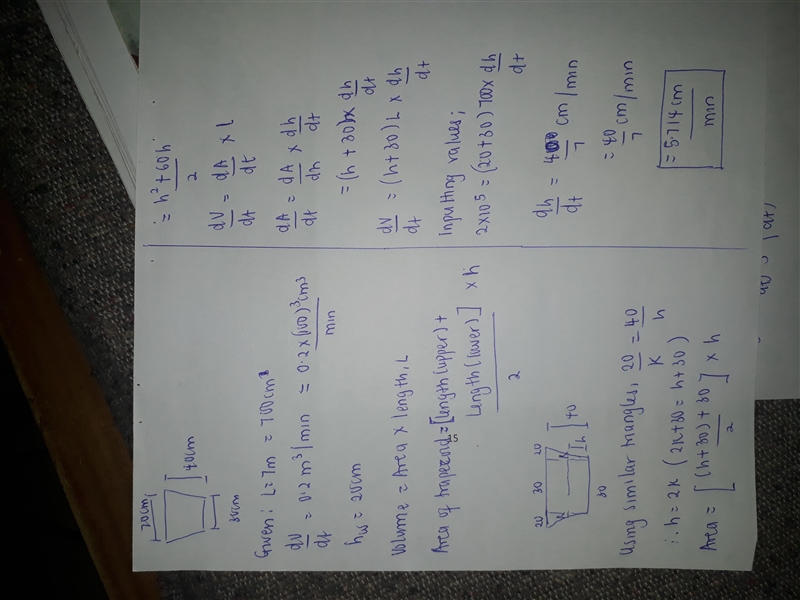 70cm
40cm
30cm
Given: L=7m = 700cm
dV/dt = 0.2 m³/min = 0.2 x (100)³ cm³/min
hω = 20cm
Volume = Area x length, L
Area of trapezoid = [length (upper) + length (lower)]/2 x h
15
20 30 20
h
40
30
Using similar triangles, 20/x = 40/h
∴ h = 2x (2x+30 = h+30)
Area = [(h+30) + 30]/2 x h
= h² + 60h/2
dV/dt = dA/dt x L
dA/dt = dA/dh x dh/dt
= (h + 30) x dh/dt
dV/dt = (h+30) L x dh/dt
Inputting values;
2x10⁵ = (20+30) 700 x dh/dt
dh/dt = 40/7 cm/min
= 40/7 cm/min
= 5.714 cm/min